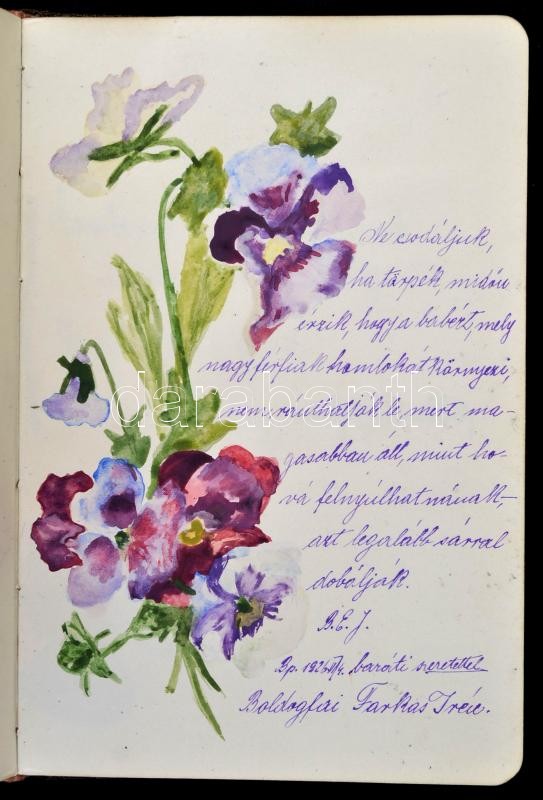 Ne csodáljuk,
ha törpék, midőn
érzik, hogy a babért, mely
nagy férfiak homlokát környezi,
nem ránthatják le, mert ma-
gasabban áll, mint ho-
vá felnyúlhatnának –
azt legalább sárral
dobálják.
B. E. J.
Bp. baráti szeretettel
Boldogfai Farkas Irén.
darabanth